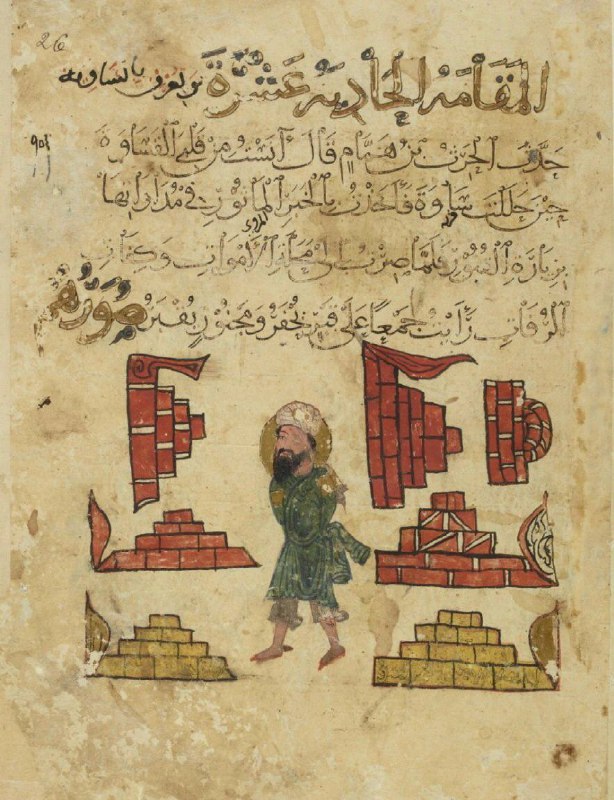 26
المقامه الحاديه عشرة وتعرف بالساويه
حدث الحرث بن همام قال آنست من قلبي القساوة
حين حللت ساوة فأخذت بالخبر المأثور في مداواتها
بزيارة القبور فلما صرت إلى محلة الأموات وكفات
الرفات رأيت جمعا على قبر يحفر ومجنوز يقبر صورتهم